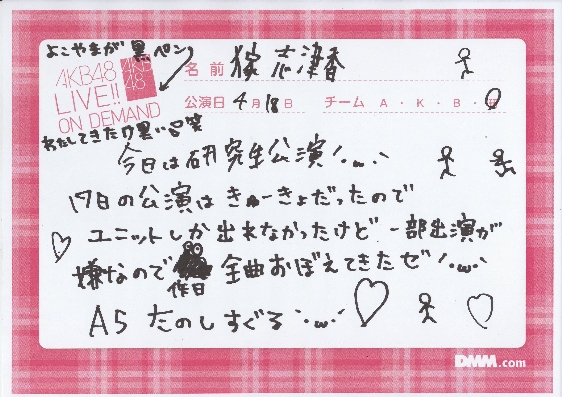 よこやまが黒ペン
わたしてきたけ黒い口笑
AKB48
LIVE!!
ON DEMAND
AKB
48
名前 猿 志津香
公演日 4月18日 チーム A・K・B・研
今日は研究生公演!・ω・、
17日の公演はきゅーきょだったので
ユニットしか出れなかったけど 一部出演が
嫌なので 全曲おぼえてきたぜ!・ω・、
作日
A5 たのしすぐる`・ω・´
DMM.com